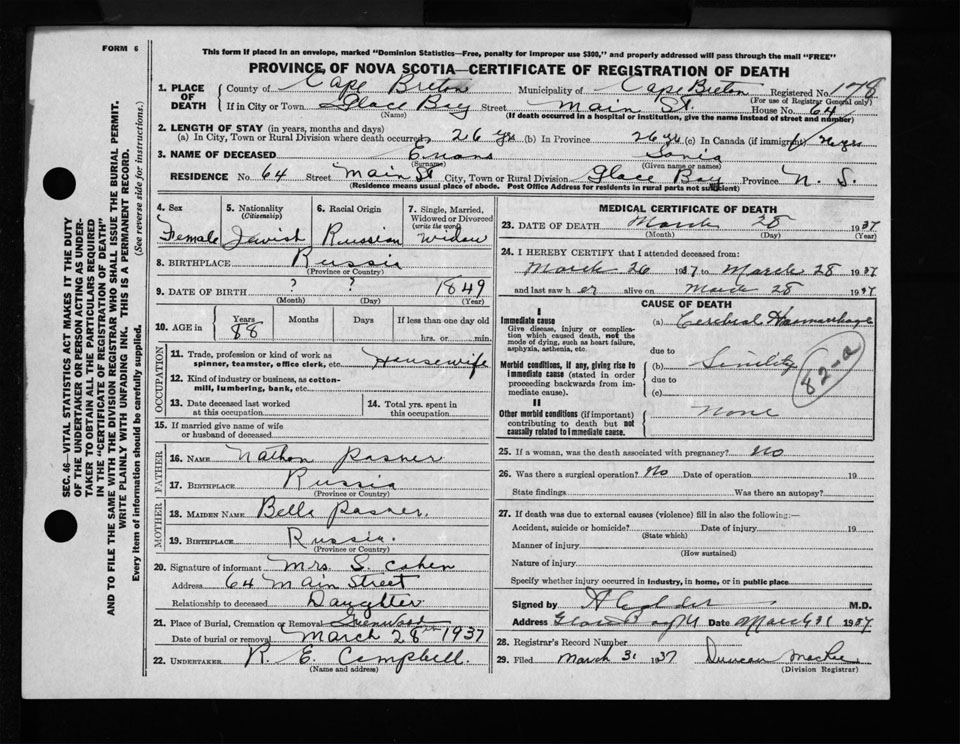 FORM 6
This form if placed in an envelope, marked "Dominion Statistics—Free, penalty for improper use $300," and properly addressed will pass through the mail "FREE"
PROVINCE OF NOVA SCOTIA—CERTIFICATE OF REGISTRATION OF DEATH
1. PLACE OF DEATH
County of Cape Breton Municipality of Cape Breton Registered No. 178
(For use of Registrar General only)
If in City or Town Glace Bay Street Main St. House No. 64
(Name) (If death occurred in a hospital or institution, give the name instead of street and number)
2. LENGTH OF STAY (in years, months and days)
(a) In City, Town or Rural Division where death occurred 26 yrs (b) In Province 26 yrs (c) In Canada (if immigrant)
3. NAME OF DECEASED Evans
(Surname) (Given name or names)
RESIDENCE No. 64 Street Main St City, Town or Rural Division Glace Bay Province N. S.
(Residence means usual place of abode. Post Office Address for residents in rural parts not sufficient)
4. Sex Female
5. Nationality (Citizenship) Jewish
6. Racial Origin Russian
7. Single, Married, Widowed or Divorced (write the word) Widow
8. BIRTHPLACE Russia
(Province or Country)
9. DATE OF BIRTH ? ? 1849
(Month) (Day) (Year)
10. AGE in Years Months Days If less than one day old
88 hrs. or min.
OCCUPATION
11. Trade, profession or kind of work as spinner, teamster, office clerk, etc. Housewife
12. Kind of industry or business, as cotton-mill, lumbering, bank, etc.
13. Date deceased last worked at this occupation
14. Total yrs. spent in this occupation
15. If married give name of wife or husband of deceased
FATHER
16. NAME Nathan Pasner
17. BIRTHPLACE Russia
(Province or Country)
MOTHER
18. MAIDEN NAME Bella Pasner.
19. BIRTHPLACE Russia.
(Province or Country)
20. Signature of informant Mrs. S. Cohen
Address 64 Main Street
Relationship to deceased Daughter
21. Place of Burial, Cremation or Removal Greenwood
Date of burial or removal March 28th 1937
22. UNDERTAKER R. E. Campbell.
(Name and address)
MEDICAL CERTIFICATE OF DEATH
23. DATE OF DEATH March 28 1937
(Month) (Day) (Year)
24. I HEREBY CERTIFY that I attended deceased from:
March 26 1937 to March 28 1937
and last saw her alive on March 28 1937
CAUSE OF DEATH
I
Immediate cause
Give disease, injury or complication which caused death, not the mode of dying, such as heart failure, asphyxia, asthenia, etc.
(a) Cerebral Haemorrhage
due to
Morbid conditions, if any, giving rise to immediate cause (stated in order proceeding backwards from immediate cause).
(b) Senility
due to
(c)
82-a
II
Other morbid conditions (if important) contributing to death but not causally related to immediate cause.
None
25. If a woman, was the death associated with pregnancy? No
26. Was there a surgical operation? No Date of operation 19
State findings Was there an autopsy?
27. If death was due to external causes (violence) fill in also the following:—
Accident, suicide or homicide? Date of injury 19
(State which)
Manner of injury
(How sustained)
Nature of injury
Specify whether injury occurred in industry, in home, or in public place
Signed by M.D.
Address Glace Bay Date March 31 1937
28. Registrar's Record Number
29. Filed March 31 1937 Duncan
(Division Registrar)
SEC. 46—VITAL STATISTICS ACT MAKES IT THE DUTY
OF THE UNDERTAKER OR PERSON ACTING AS UNDER-
TAKER TO OBTAIN ALL THE PARTICULARS REQUIRED
IN THE "CERTIFICATE OF REGISTRATION OF DEATH"
AND TO FILE THE SAME WITH THE DIVISION REGISTRAR WHO SHALL ISSUE THE BURIAL PERMIT.
WRITE PLAINLY WITH UNFADING INK. THIS IS A PERMANENT RECORD.
Every item of information should be carefully supplied. (See reverse side for instructions.)